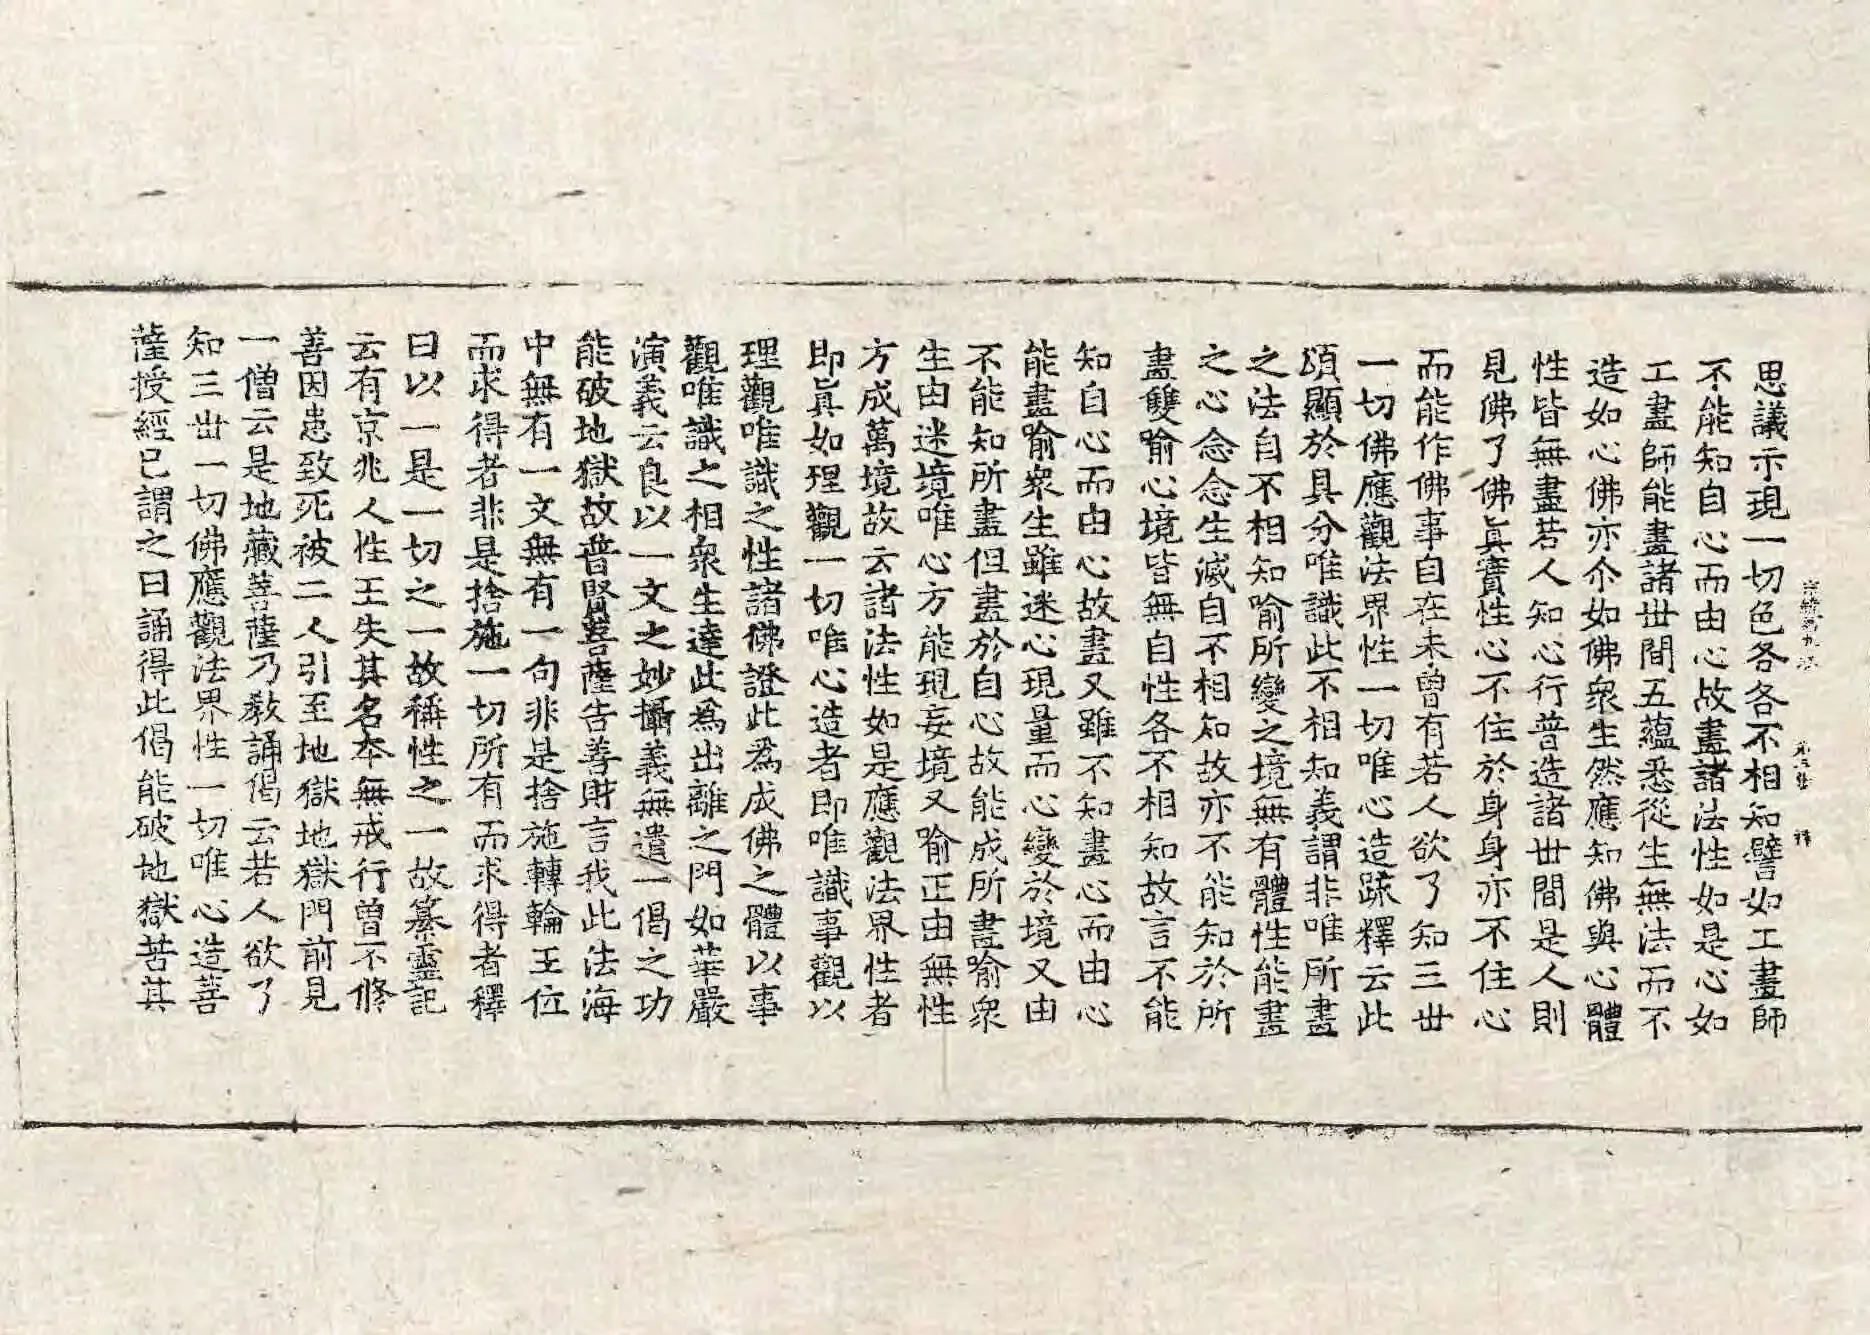 思議示現一切色各各不相知譬如工畫師
不能知自心而由心故畫諸法性如是心如
工畫師能畫諸世間五蘊悉從生無法而不
造如心佛亦尒如佛衆生然應知佛與心體
性皆無盡若人知心行普造諸世間是人則
見佛了佛眞實性心不住於身身亦不住心
而能作佛事自在未曾有若人欲了知三世
一切佛應觀法界性一切唯心造䟽釋云此
頌顯於具分唯識此不相知義謂非唯所畫
之法自不相知喻所變之境無有體性能畫
之心念念生滅自不相知故亦不能知於所
畫雙喻心境皆無自性各不相知故言不能
知自心而由心故畫又雖不知畫心而由心
能畫喻衆生雖迷心現量而心變於境又由
不能知所畫但畫於自心故能成所畫喻衆
生由迷境唯心方能現妄境又喻正由無性
方成萬境故云諸法性如是應觀法界性者
即眞如理觀一切唯心造者即唯識事觀以
理觀唯識之性諸佛證此爲成佛之體以事
觀唯識之相衆生達此爲出離之門如華嚴
演義云良以一文之妙攝義無遺一偈之功
能破地獄故普賢菩薩告善財言我此法海
中無有一文無有一句非是捨施轉輪王位
而求得者非是捨施一切所有而求得者釋
曰以一是一切之一故稱性之一故纂靈記
云有京兆人性王失其名本無戒行曾不修
善因患致死被二人引至地獄地獄門前見
一僧云是地藏菩薩乃教誦偈云若人欲了
知三世一切佛應觀法界性一切唯心造菩
薩授經已謂之曰誦得此偈能破地獄苦其